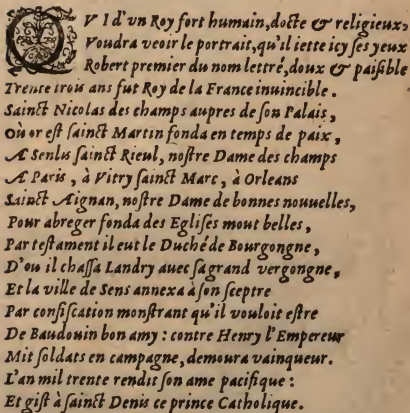 QVI d'vn Roy fort humain, docte & religieux,
Voudra veoir le portrait, qu'il iette icy ſes yeux
Robert premier du nom lettré, doux & paiſible
Trente trois ans fut Roy de la France inuincible.
Sainct Nicolas des champs aupres de ſon Palais,
Où or eſt ſainct Martin fonda en temps de paix,
A Senlis ſainct Rieul, noſtre Dame des champs
A Paris, à Vitry ſainct Marc, à Orleans
Sainct Aignan, noſtre Dame de bonnes nouuelles,
Pour abreger fonda des Egliſes mout belles,
Par teſtament il eut le Duché de Bourgongne,
D'ou il chaſſa Landry auec ſa grand vergongne,
Et la ville de Sens annexa à ſon ſceptre
Par confiſcation monſtrant qu'il vouloit eſtre
De Baudouin bon amy : contre Henry l'Empereur
Mit ſoldats en campagne, demoura vainqueur.
L'an mil trente rendit ſon ame pacifique :
Et giſt à ſainct Denis ce prince Catholique.